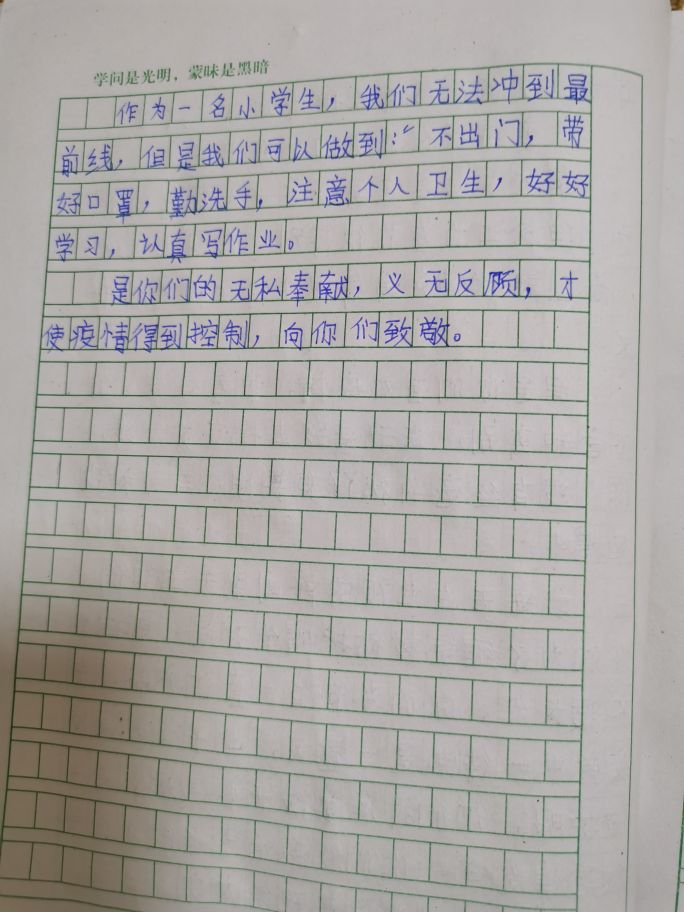 学问是光明，蒙昧是黑暗
作为一名小学生，我们无法冲到最
前线，但是我们可以做到：“不出门，带
好口罩，勤洗手，注意个人卫生，好好
学习，认真写作业。
是你们的无私奉献，义无反顾，才
使疫情得到控制，向你们致敬。